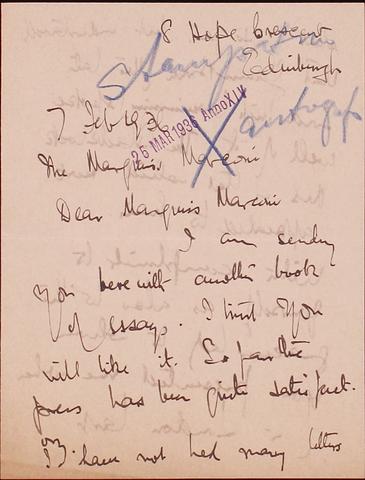 8 Hope Crescent
Edinburgh
7 Feb 193
25 MAR 1936 Anno XIV
The Marquis Marconi
Dear Marquis Marconi
I am sending
you herewith another book
of essays. I trust you
will like it. So far the
press has been quite satisfact-
ory. I have not had many letters